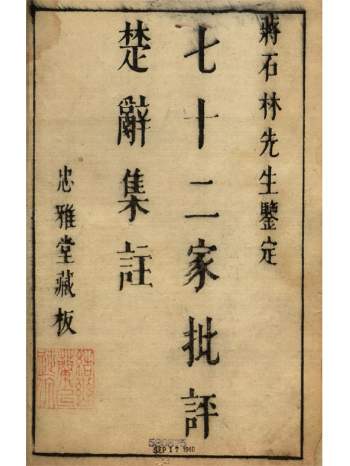 蔣石林先生鑒定
七十二家批評
楚辭集註
忠雅堂藏板
SEP 17 1910